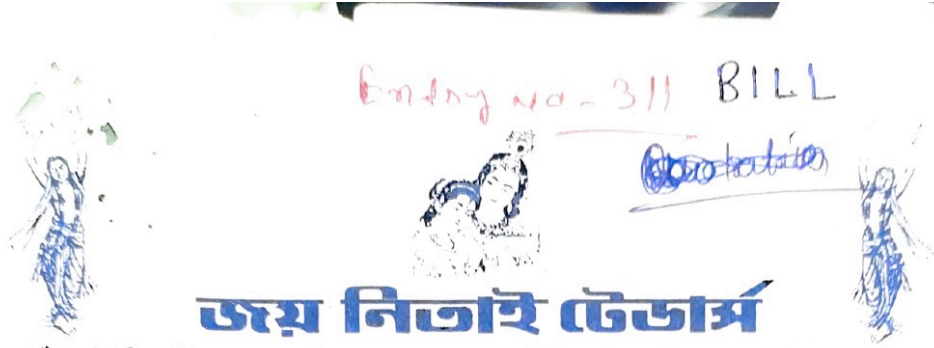 Entry No - 311 BILL
জয় নিতাই টেডার্স